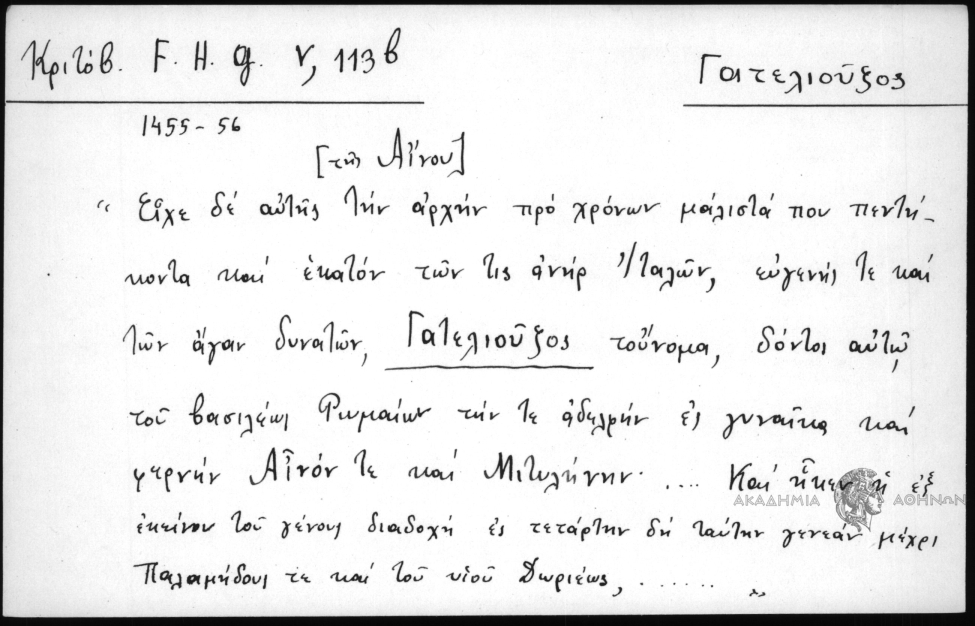 Κριτόβ. F. H. G. V, 113 β
Γατελιοῦξος
1455-56
[τῆς Αἴνου]
“ Εἶχε δέ αὐτῆς τήν ἀρχήν πρό χρόνων μάλιστά που πεντή-
κοντα καί ἑκατόν τῶν τις ἀνήρ Ἰταλῶν, εὐγενής τε καί
τῶν ἄγαν δυνατῶν, Γατελιοῦξος τοὔνομα, δόντος αὐτῷ
τοῦ βασιλέως Ρωμαίων τήν τε ἀδελφήν ἐς γυναῖκα καί
φερνήν Αἶνόν τε καί Μιτυλήνην. .... Καί ἧκεν ἡ ἐξ
ἐκείνου τοῦ γένους διαδοχή ἐς τετάρτην δή ταύτην γενεάν μέχρι
Παλαμήδους τε καί τοῦ υἱοῦ Δωριέως, ....... ”
ΑΚΑΔΗΜΙΑ ΑΘΗΝΩΝ